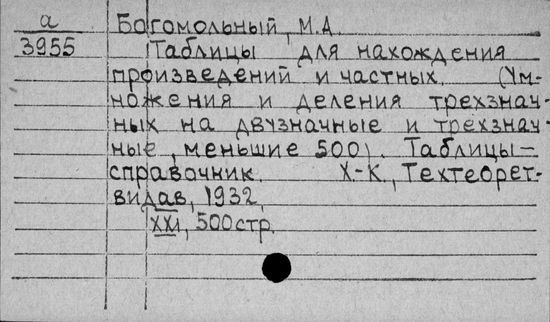 а
3955
Богомольный, М.А.
Таблицы для нахождения
произведений и частных. (Ум-
ножения и деления трехзнач-
ных на двузначные и трехзнач-
ные, меньшие 500). Таблицы-
справочник. Х-К., Техтеорет-
видав, 1932,
XXI, 500стр.